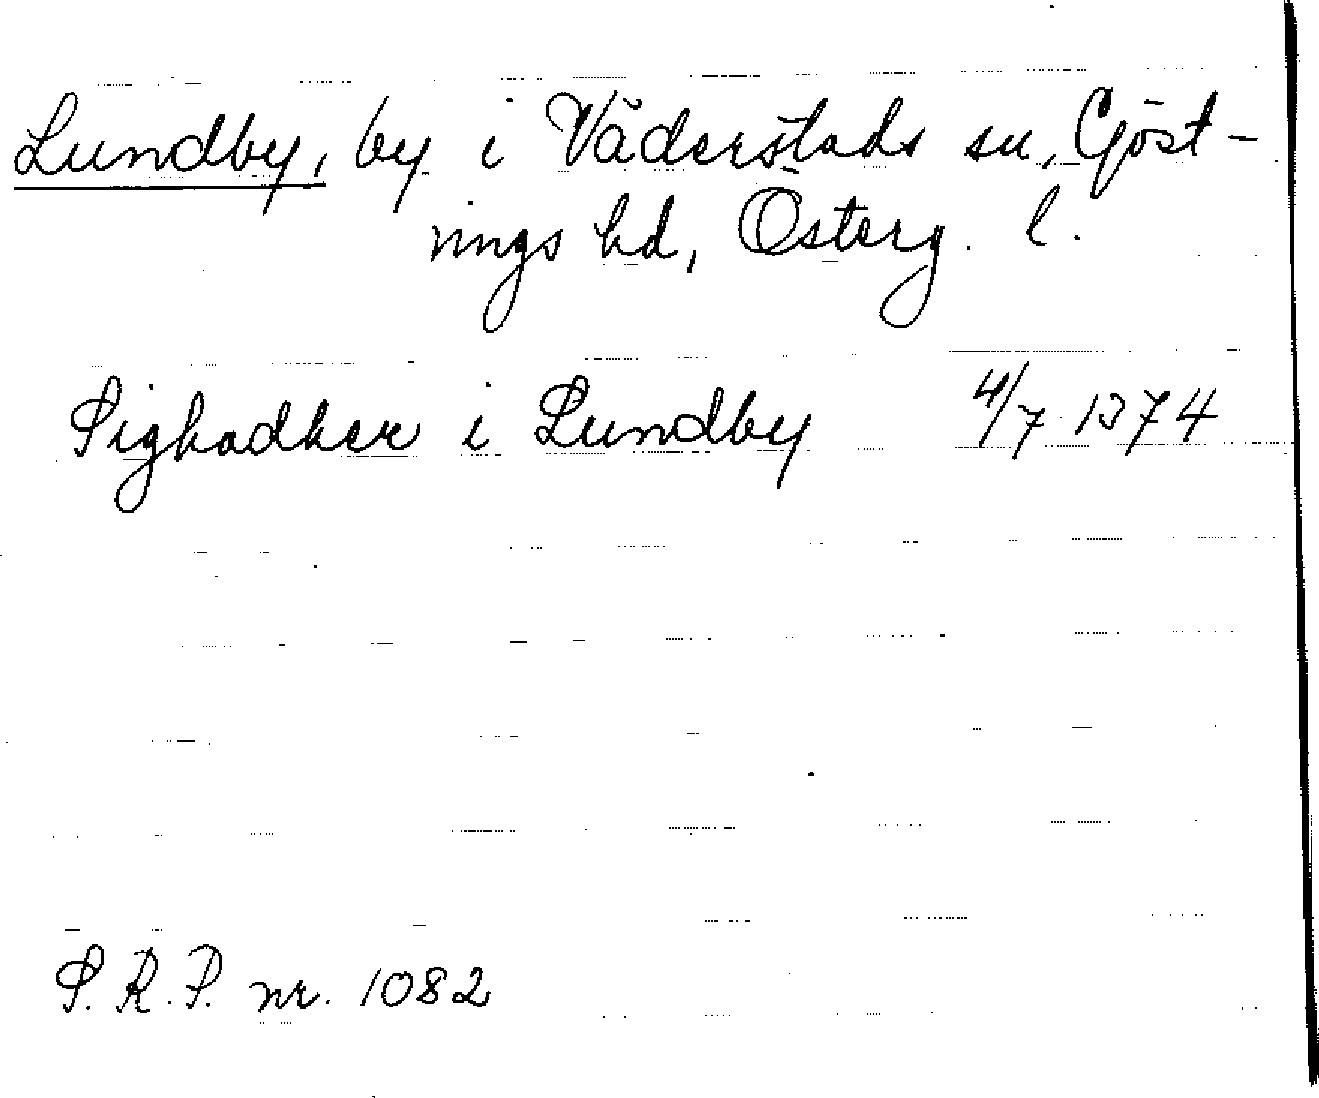 Lundby, by i Väderstads sn, Göst-
ings hd, Österg. l.
Sighadher i Lundby 4/7 1374
S.R.P. nr. 1082